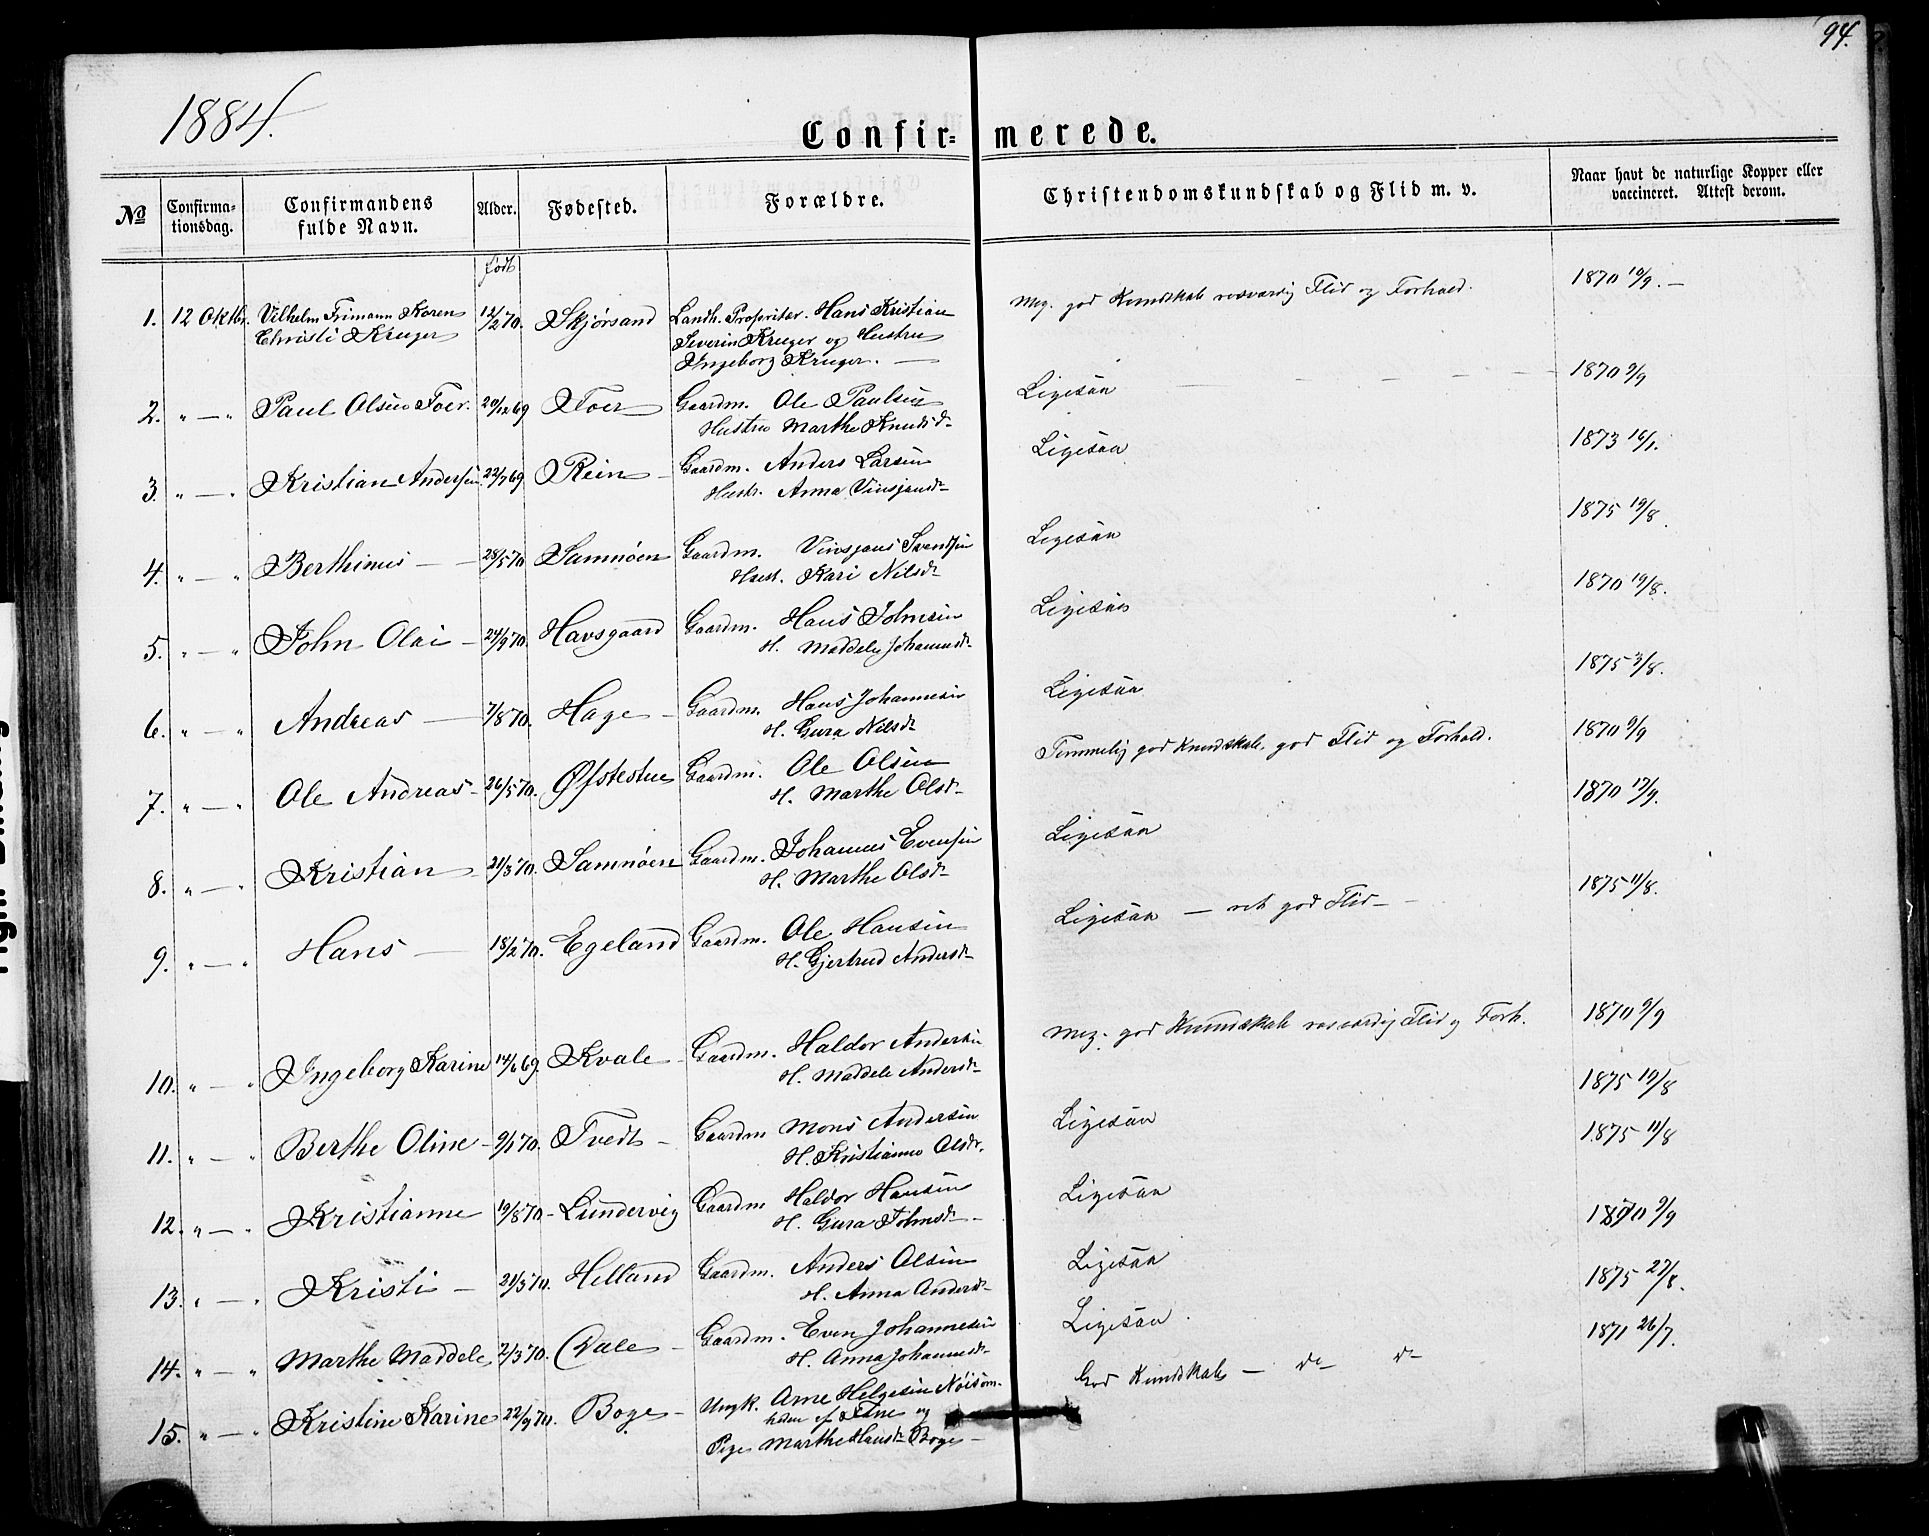 94.
1884.
Confir= merede.
No
Confirma-
tionsdag.
Confirmandens
fulde Navn.
Alder.
Fødested.
Forældre.
Christendomskundskab og Flid m. v.
Naar havt de naturlige Kopper eller
vaccineret. Attest derom.
født
1. 12 Oktbr. Vilhelm Frimann Koren 12/2 70. Skjørsand Landh. Propritær. Hans Kristian Meg. god Kundskab rosværdig Flid og Forhold. 1870 10/9. —
Christi Kruger Severin Kruger og Hustru
Ingeborg Kruger. —
2. " — " Paul Olsen Toer. 20/12 69 Toer Gaardm. Ole Paulsen Ligesaa — — — — 1870 9/9
Hustru Marthe Knudsd-
3. " — " Kristian Andersen 22/7 69 Rein — Gaardm. Anders Larsen Ligesaa 1873 16/1.
Hustr. Anna Vinsjansd-
4. " — " Berthinus — — 28/5 70 Samnøen Gaardm. Vinsjans Svendsen Ligesaa 1875 19/8.
Hust. Kari Nilsd-
5. " — " John Olai — 24/9 70. Havsgaard Gaardm. Hans Johnsen Ligesaa 1870 19/8.
H. Maddele Johannesd-
6. " — " Andreas — 7/8 70. Hage — Gaardm. Hans Johannesen Ligesaa 1875 3/8.
H. Gura Nilsd-
7. " — " Ole Andreas — 26/5 70. Øfstestue Gaardm. Ole Olsen Temmelig god Kundskab, god Flid og Forhold. 1870 9/9
H. Marthe Olsd-
8. " — " Kristian — 21/3 70. Samnøen Gaardm. Johannes Evensen Ligesaa 1870 13/9.
H. Marthe Olsd-
9. " — " Hans — 18/2 70. Egeland Gaardm. Ole Hansen Ligesaa — ret god Flid — 1875 11/8.
H. Gjertrud Andersd-
10. " — " Ingeborg Karine 14/6 69. Kvale — Gaardm. Haldor Andersen Meg. god Kundskab rosværdig Flid og Forh. 1870 9/9
H. Maddele Andersd-
11. " — " Berthe Oline — 9/1 70. Tvedt — Gaardm Mons Andersen Ligesaa 1875 19/8
H. Kristianne Olsdr.
12. " — " Kristianne 19/8 70 — Lundervig Gaardm Haldor Hansen Ligesaa 1875 11/8
H. Gura Johnsd-
13. " — " Kristi — 21/3 70. Helland Gaardm. Anders Olsen Ligesaa 1870 9/9
H. Anna Andersd-
14. " — " Marthe Maddele 2/3 70. Dale — Gaardm. Even Johannesen Ligesaa 1875 27/8.
H. Anna Johannesd-
15. " — " Kristine Karine 22/9 70. Boge — Ungk. Arne Helgesen Nøisom- God Kundskab — do do 1871 26/7.
heden af Etne og
Pige Marthe Hansd- Boge —